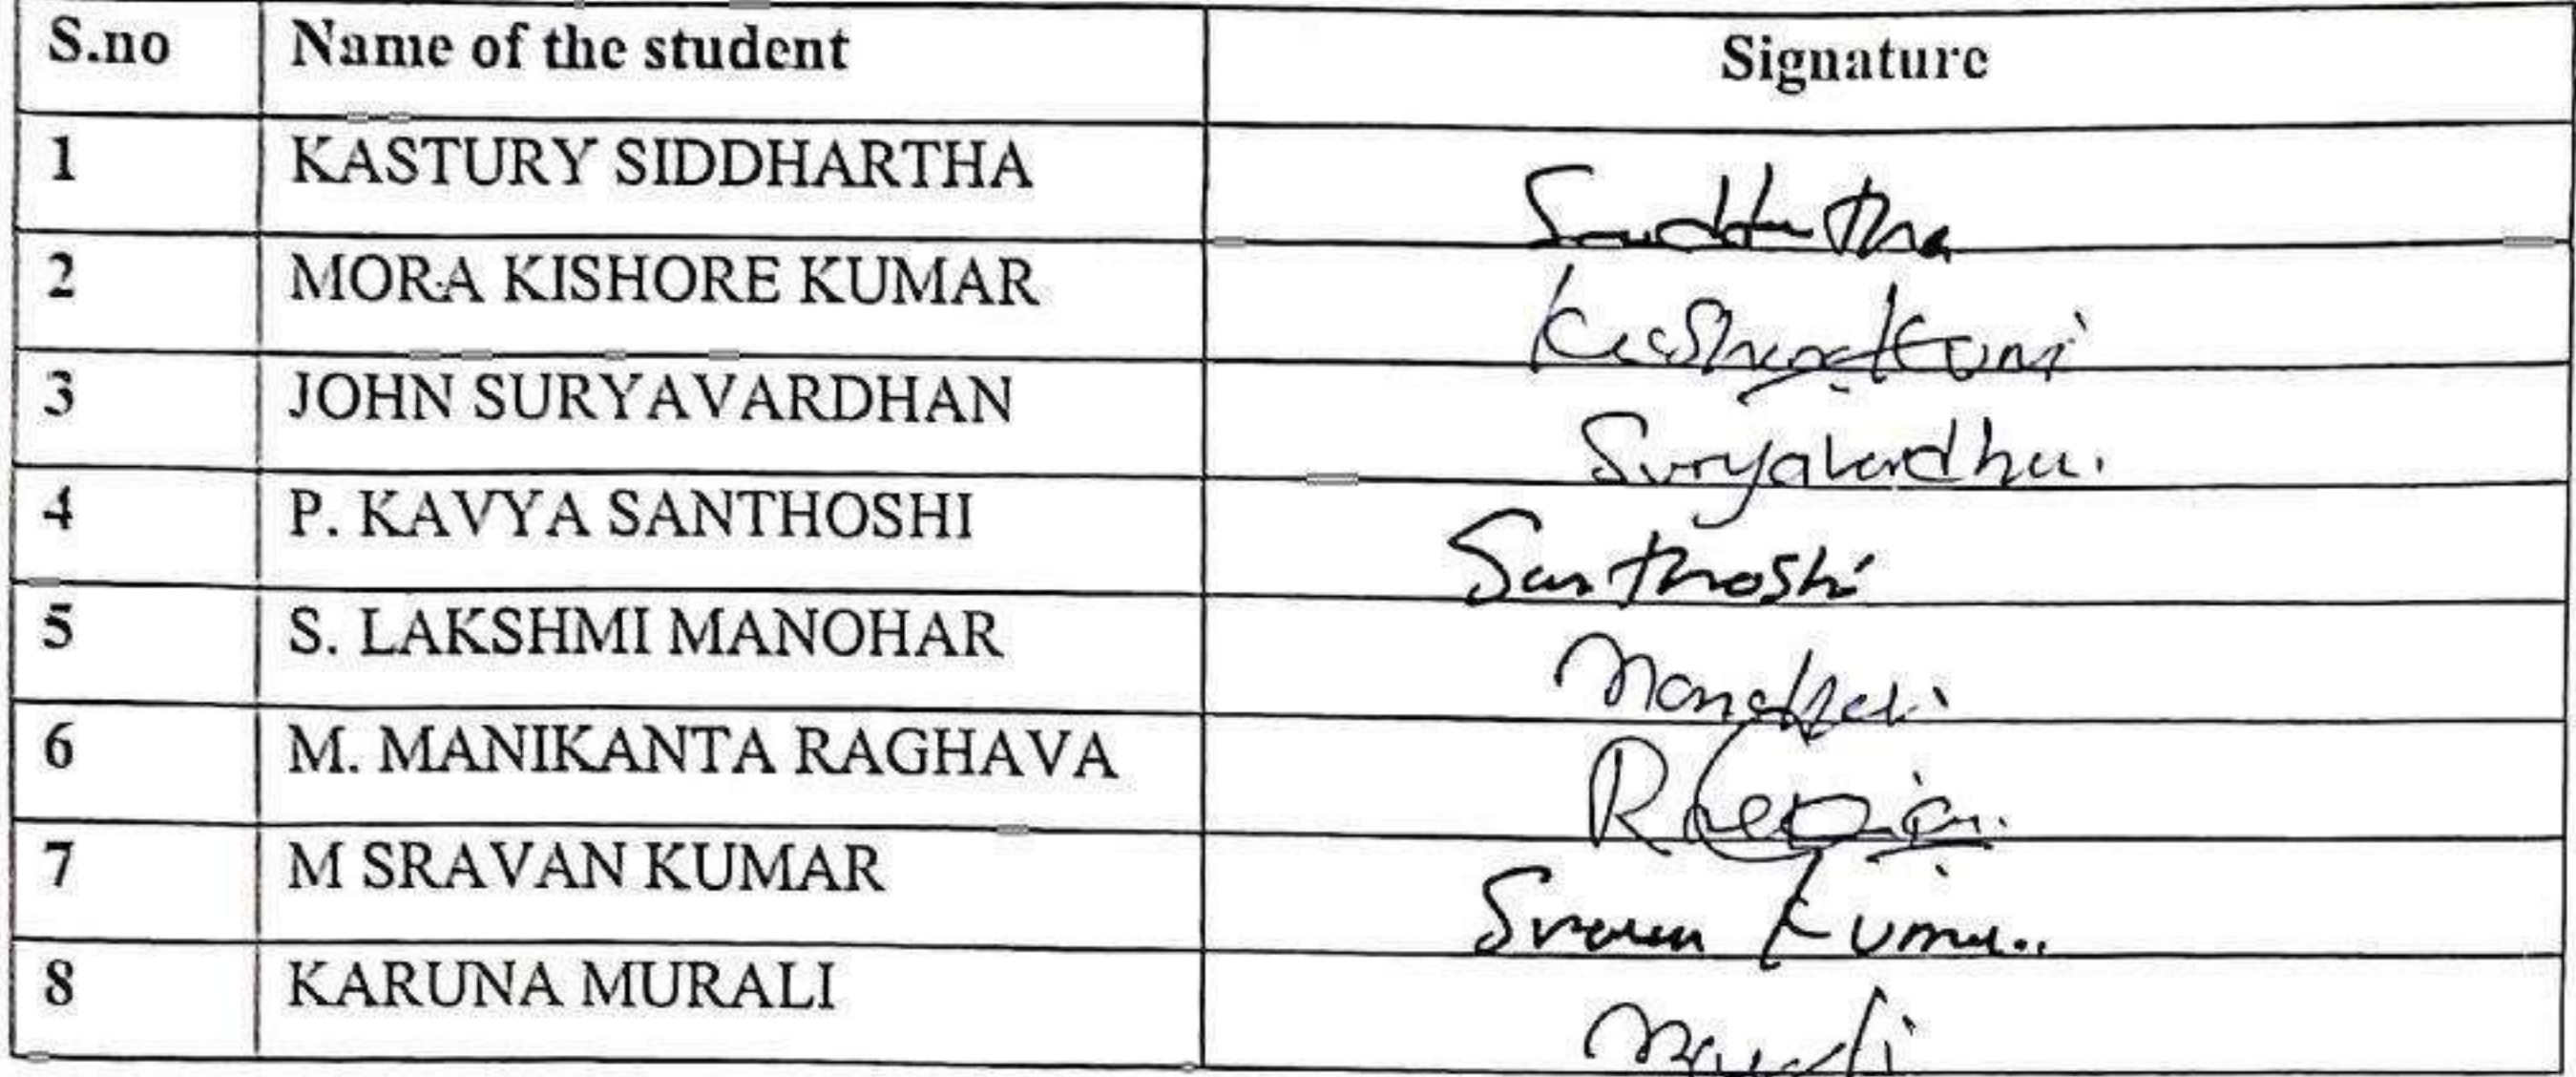 S.no Name of the student Signature
1 KASTURY SIDDHARTHA Siddhartha
2 MORA KISHORE KUMAR
3 JOHN SURYAVARDHAN Suryavardhu.
4 P. KAVYA SANTHOSHI Santhoshi
5 S. LAKSHMI MANOHAR Manohar
6 M. MANIKANTA RAGHAVA
7 M SRAVAN KUMAR Sravan Kumar
8 KARUNA MURALI Murali